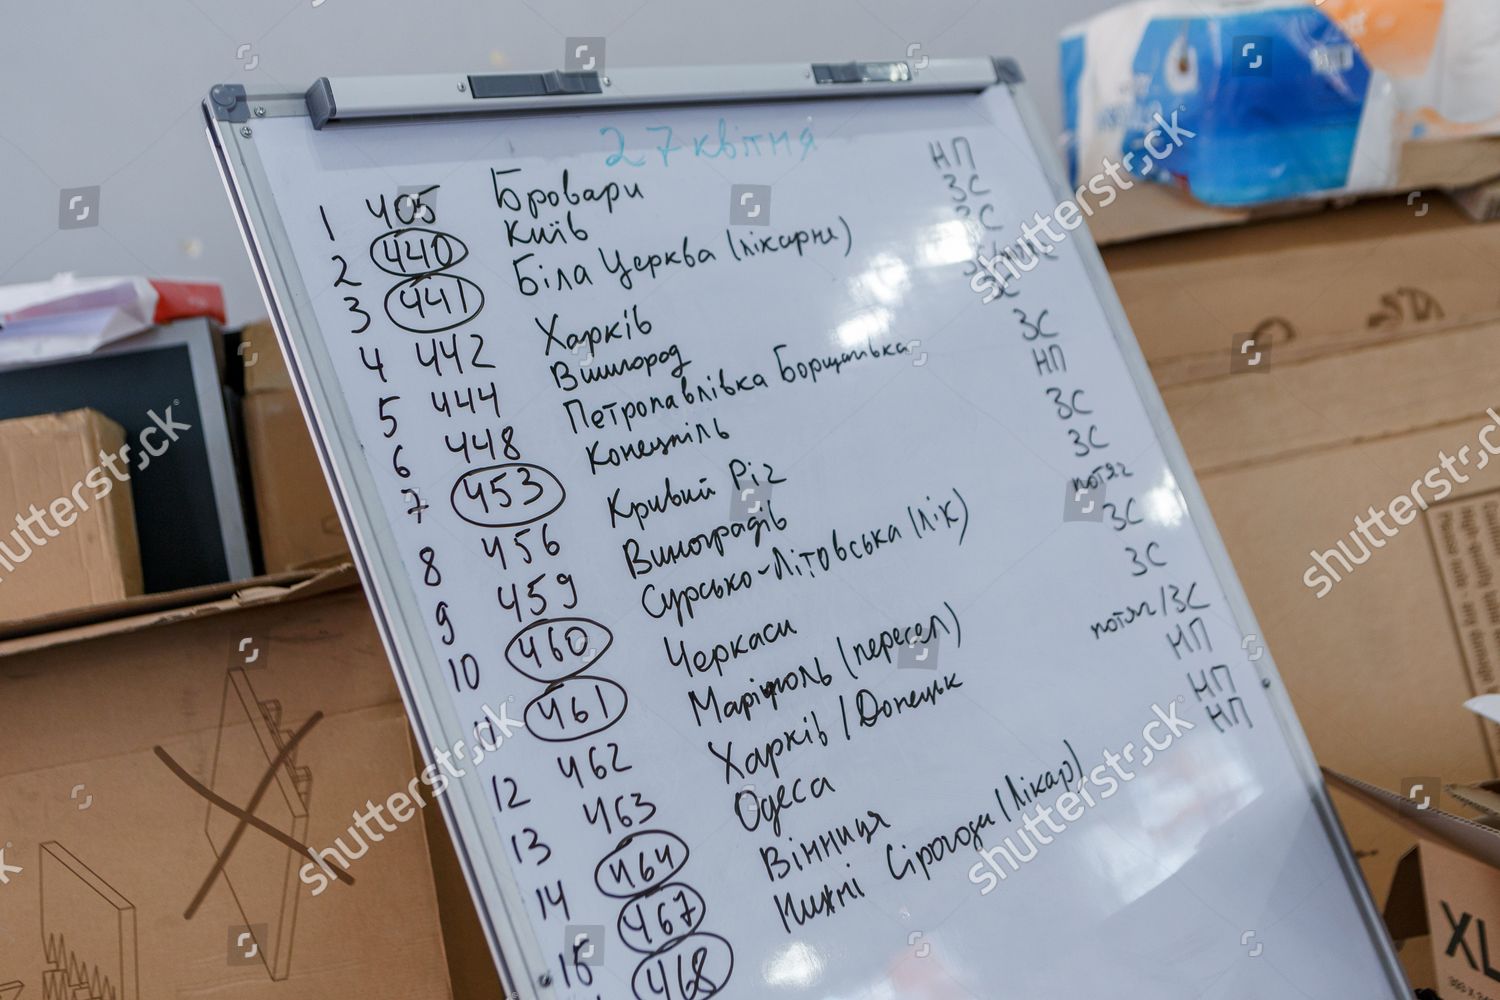 27 квітня
1 405 Бровари НП
2 440 Київ ЗС
3 441 Біла Церква (лікарня) ЗС
4 442 Харків
5 444 Вишгород ЗС
6 448 Петропавлівка Борщагівка ЗС
7 453 Конецпіль НП
8 456 Кривий Ріг ЗС
9 459 Виноградів ЗС
10 460 Сурсько-Літовська (лік) потяг
11 461 Черкаси ЗС
12 462 Маріуполь (пересел) ЗС
13 463 Харків / Донецьк потяг/ЗС
14 464 Одеса НП
15 467 Вінниця НП
468 Нижні Сірогози (лікар) НП
XL
shutterstock
shutterstock
shutterstock
shutterstock
shutterstock
shutterstock